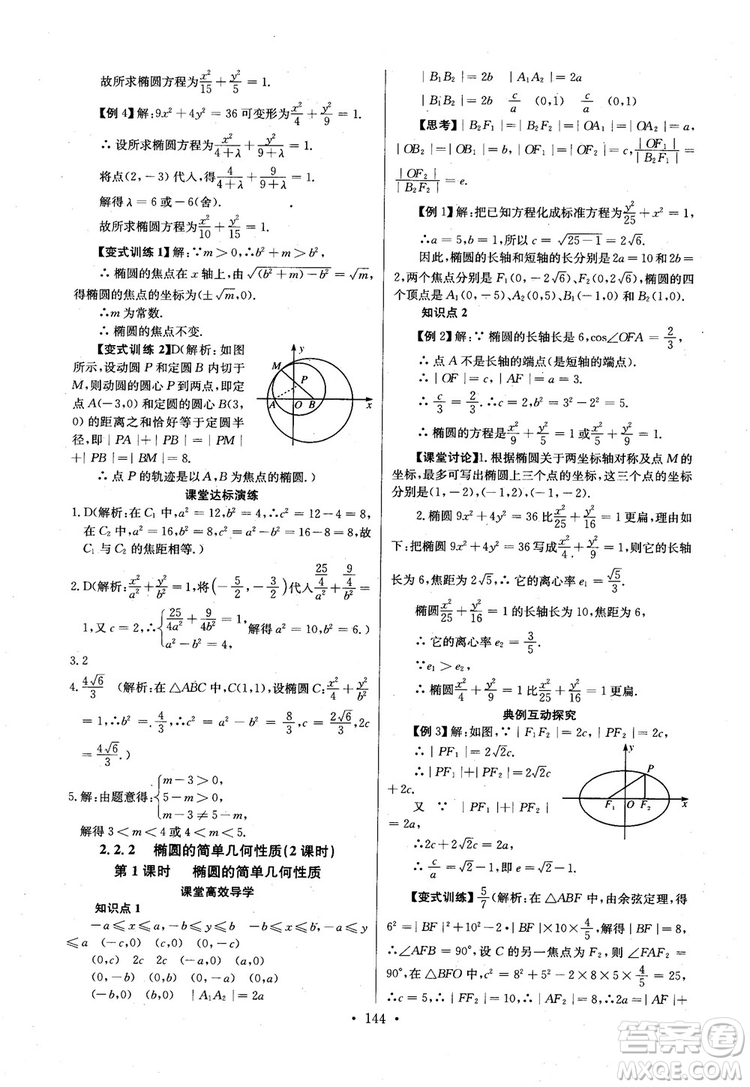 故所求椭圆方程为x²/15+y²/5=1.
【例 4】解:9x²+4y²=36 可变形为x²/4+y²/9=1.
∴设所求椭圆方程为x²/(4+λ)+y²/(9+λ)=1.
将点(2,-3)代人,得4/(4+λ)+9/(9+λ)=1.
解得 λ=6 或 λ=-6(舍).
故所求椭圆方程为x²/10+y²/15=1.
【变式训练 1】解:∵m>0,∴b²+m>b².
∴椭圆的焦点在 x 轴上,由√((b²+m)-b²)=√m,
得椭圆的焦点的坐标为(±√m,0).
∴m 为常数.
∴椭圆的焦点不变.
【变式训练 2】D(解析:如图
所示,设动圆 P 和定圆 B 内切于
M,则动圆的圆心 P 到两点,即定
点 A(-3,0)和定圆的圆心 B(3,
0)的距离之和恰好等于定圆半
径,即|PA|+|PB|=|PM|
+|PB|=|BM|=8.
∴点 P 的轨迹是以 A,B 为焦点的椭圆.)
M y P A O B x
课堂达标演练
1. D(解析:在 C₁ 中,a²=12,b²=4,c²=12-4=8,在 C₂
中,a²=16,b²=8,c²=a²-b²=16-8=8.故
C₁ 与 C₂ 的焦距相等.)
2. D(解析:x²/a²+y²/b²=1,将(-5/2,-3/2)代人(25/4)/a²+(9/4)/b²=
1,又 c=2,∴{25/4a²+9/4b²=1, a²=b²+4, 解得 a²=10,b²=6.)
3. 2
4. 4√6/3 (解析:在△ABC 中,C(1,1),设椭圆 C:x²/4+y²/b²
=1,代人得 b²=4/3,∴c²=4-4/3=8/3,c=2√6/3,2c
=4√6/3.)
5. 解:由题意得:{m-3>0, 5-m>0, m-3≠5-m.
解得 3<m<4 或 4<m<5.
2.2.2 椭圆的简单几何性质(2 课时)
第 1 课时 椭圆的简单几何性质
课堂高效导学
知识点 1
-a≤x≤a,-b≤y≤b -b≤x≤b,-a≤y
≤a (-c,0) (c,0) (0,-c)
(0,c) 2c 2c (-a,0) (a,0)
(0,-b) (0,b) (-b,0) (b,0)
(0,-a) (0,a) |A₁A₂|=2a
|B₁B₂|=2b |A₁A₂|=2a
|B₁B₂|=2b c/a (0,1) (0,1)
【思考】|B₂F₁|=|B₂F₂|=|OA₁|=|OA₂|=a,
|OB₂|=|OB₁|=b,|OF₁|=|OF₂|=c,|OF₁|/|B₂F₁|=
|OF₂|/|B₂F₂|=e.
【例 1】解:把已知方程化成标准方程为y²/25+x²=1.
∴a=5,b=1,所以 c=√(25-1)=2√6.
因此,椭圆的长轴和短轴的长分别是 2a=10 和 2b=
2,两个焦点分别是 F₁(0,-2√6),F₂(0,2√6),椭圆的四
个顶点是 A₁(0,-5),A₂(0,5),B₁(-1,0),B₂(1,0).
知识点 2
【例 2】解:∵椭圆的长轴长是 6,cos∠OFA=2/3,
∴点 A 不是长轴的端点(是短轴的端点).
∴|OF|=c,|AF|=a=3.
∴c/3=2/3.∴c=2,b²=3²-2²=5.
∴椭圆的方程是x²/9+y²/5=1 或x²/5+y²/9=1.
【课堂讨论】1. 根据椭圆关于两坐标轴对称及点 M 的
坐标,最多可写出椭圆上三个点的坐标,这三个点的坐标
分别是(1,-2),(-1,2),(-1,-2).
2. 椭圆 9x²+4y²=36 比x²/25+y²/16=1 更扁,理由如
下:把椭圆 9x²+4y²=36 写成x²/4+y²/9=1,∴它的长轴
长为 6,焦距为 2√5,∴它的离心率 e₁=√5/3.
椭圆x²/25+y²/16=1 的长轴长为 10,焦距为 6,
∴它的离心率 e₂=3/5.
∵e₁>e₂,
∴椭圆x²/4+y²/9=1 比x²/25+y²/16=1 更扁.
典例互动探究
【例 3】解:如图,∵|F₁F₂|=|PF₂|=2c,
∴|PF₁|=2√2c.
∴|PF₁|+|PF₂|=2√2c
+2c.
又 ∵|PF₁|+|PF₂|
=2a,
∴2c+2√2c=2a.
∴c/a=√2-1,即 e=√2-1.
y P F₁ O F₂ x
【变式训练】5/7(解析:在△ABF 中,由余弦定理得
6²=|BF|²+10²-2|BF|×10×4/5,∴|BF|=8.
∴∠AFB=90°,设 C 的另一个焦点为 F₂,∠FAF₂=
90°,在△BFO 中,c²=8²+5²-2×8×5×4/5=25.
∴c=5,|AF₂|=|BF|=8,∴2a=|AF|+
• 144 •
答案圈
MXQE.COM